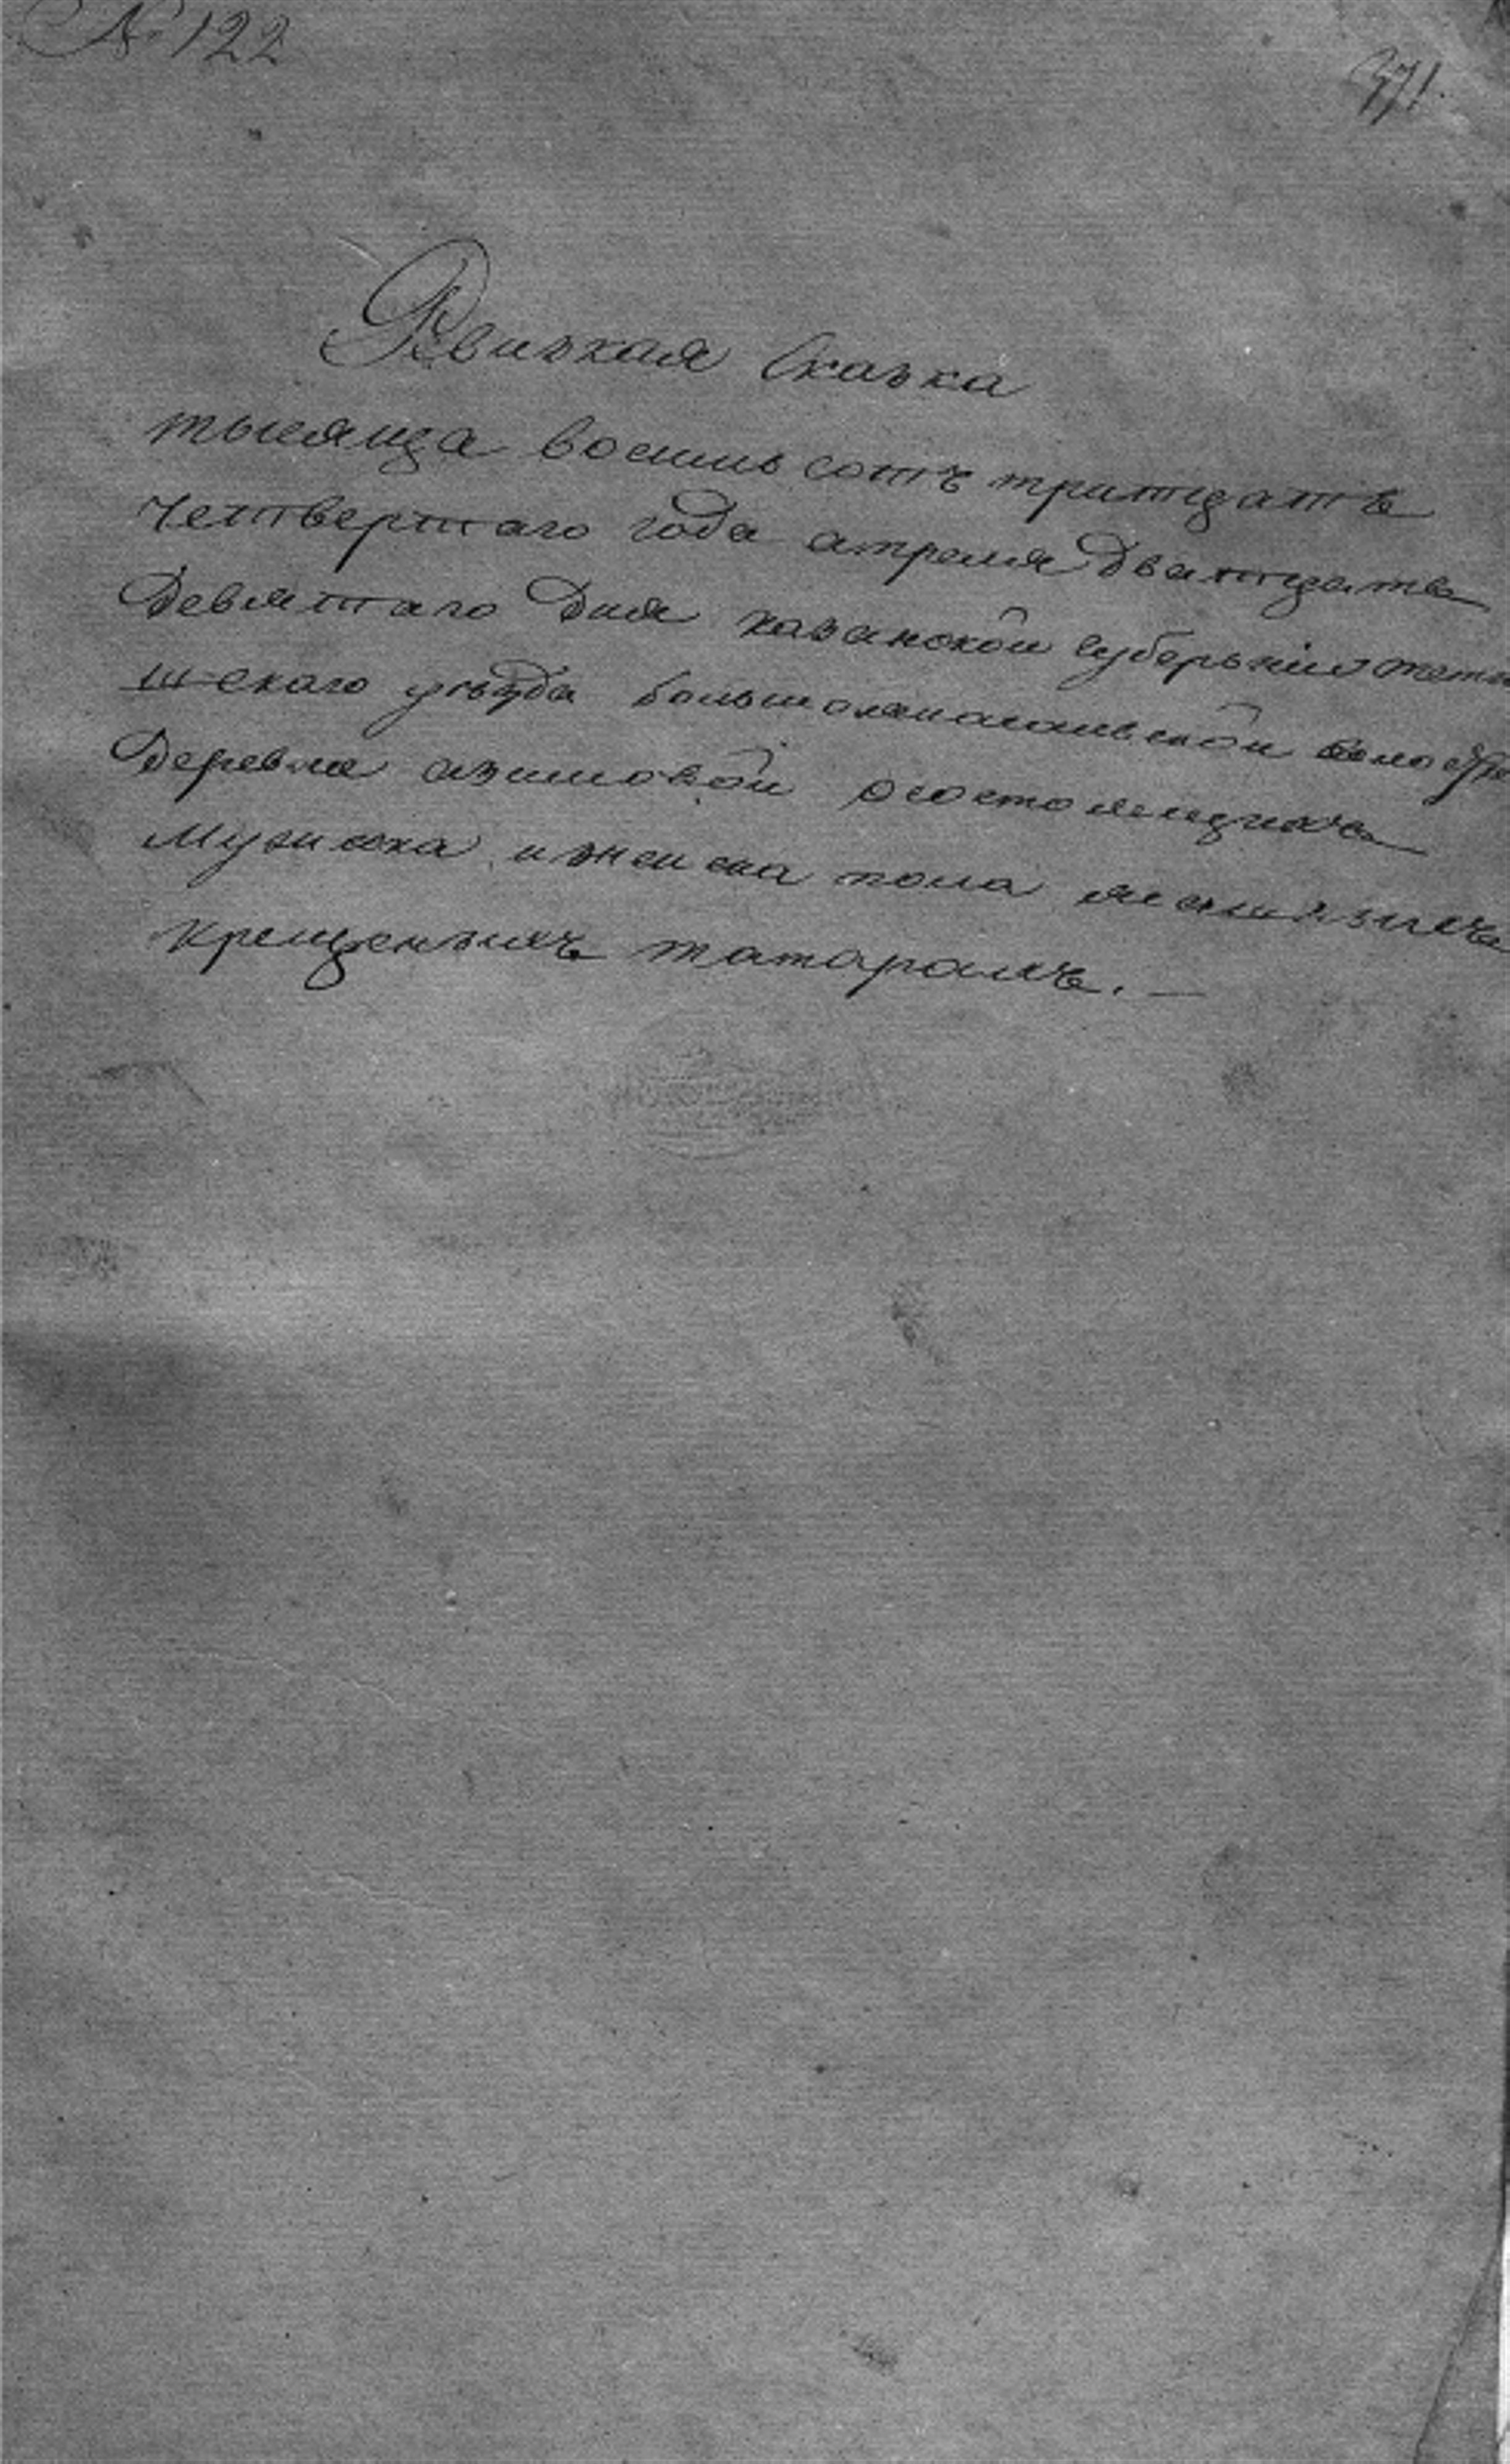 № 122
371.
Ревизкая Сказка
тысяща восимь сотъ тритцать
четвертаго года апреля Дватцать
Девятаго Дня казанской губерьнии тетю
шскаго уезда
Деревне азимовой осостоящихъ
Мужиска и женска пола ясашныхъ
крещеныхъ татарахъ. —